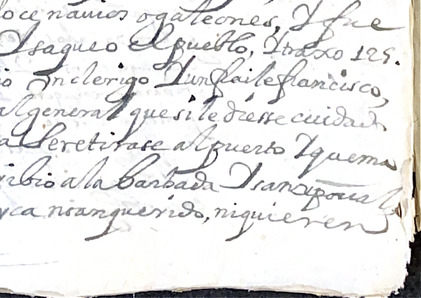 oce navios o galeones, Y fue
Y saqueo el pueblo, Y traxo 125.
io Un clerigo Y un fraile francisco,
al general que si le diesse cuidado
a Se retirase al puerto Y quema
ribio a la barbada Y san xpoual
nca nsan querido, ni quieren